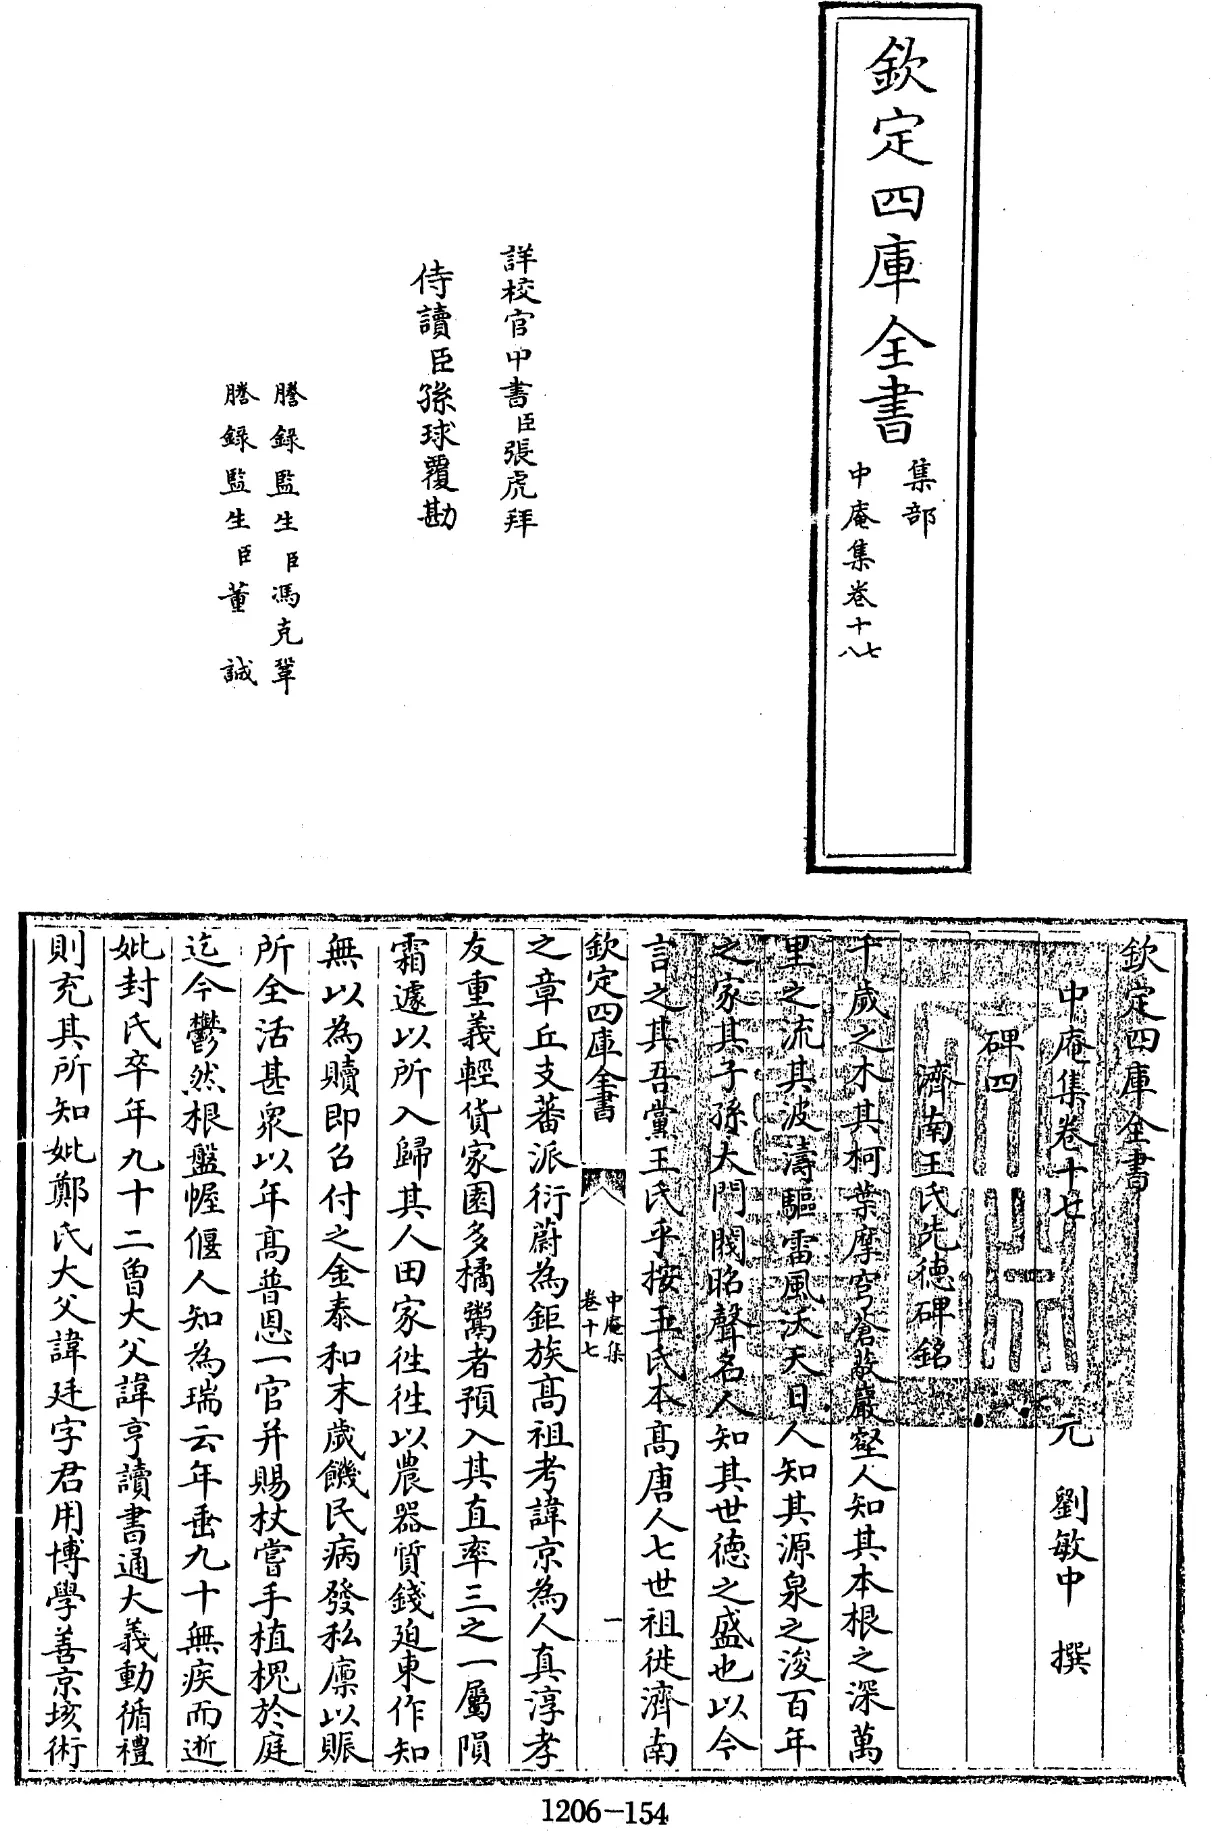 欽定四庫全書
集部
中庵集卷十七八
詳校官中書臣張虎拜
侍讀臣孫球覆勘
謄錄監生臣馮克鞏
謄錄監生臣董誠
欽定四庫全書
中庵集卷十七 元 劉敏中 撰
碑四
濟南王氏先德碑銘
千歲之木其柯葉摩穹蒼蔽巖壑人知其本根之深萬
里之流其波濤驅雷風沃天日人知其源泉之浚百年
之家其子孫大門閥昭聲名人知其世德之盛也以今
言之其吾黨王氏乎按王氏本高唐人七世祖徙濟南
欽定四庫全書
中庵集
卷十七
一
之章丘支蕃派衍蔚為鉅族高祖考諱京為人真淳孝
友重義輕貨家園多橘鬻者預入其直率三之一屬隕
霜遽以所入歸其人田家徃徃以農器質錢廹東作知
無以為贖即召付之金泰和末歲饑民病發私廪以賑
所全活甚衆以年髙普恩一官并賜杖嘗手植槐於庭
迄今鬱然根盤幄偃人知為瑞云年垂九十無疾而逝
妣封氏卒年九十二曾大父諱亨讀書通大義動循禮
則充其所知妣鄭氏大父諱廷字君用博學善京垓術
1206-154